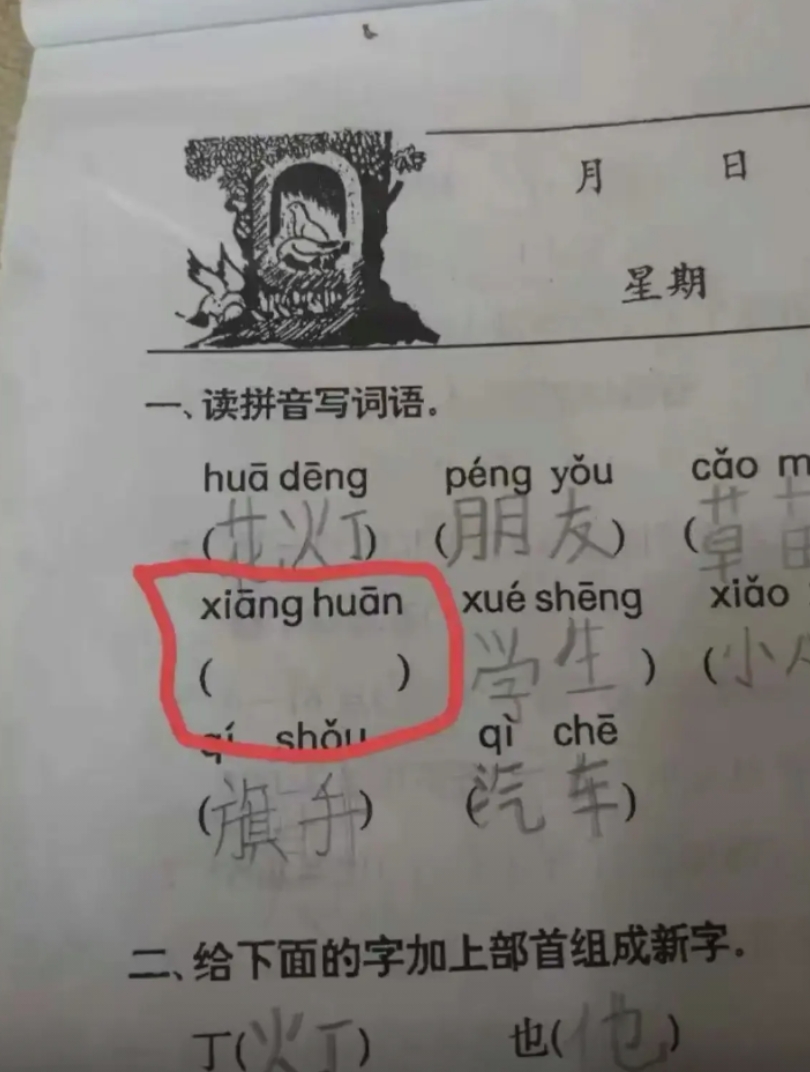 月 日
星期
一、读拼音写词语。
huā dēng péng yǒu cǎo m
(花灯) (朋友) (草苗
xiāng huān xué shēng xiǎo
( ) 学生 ) (小
qí shǒu qì chē
(旗手) (汽车)
二、给下面的字加上部首组成新字。
丁(灯) 也(他)